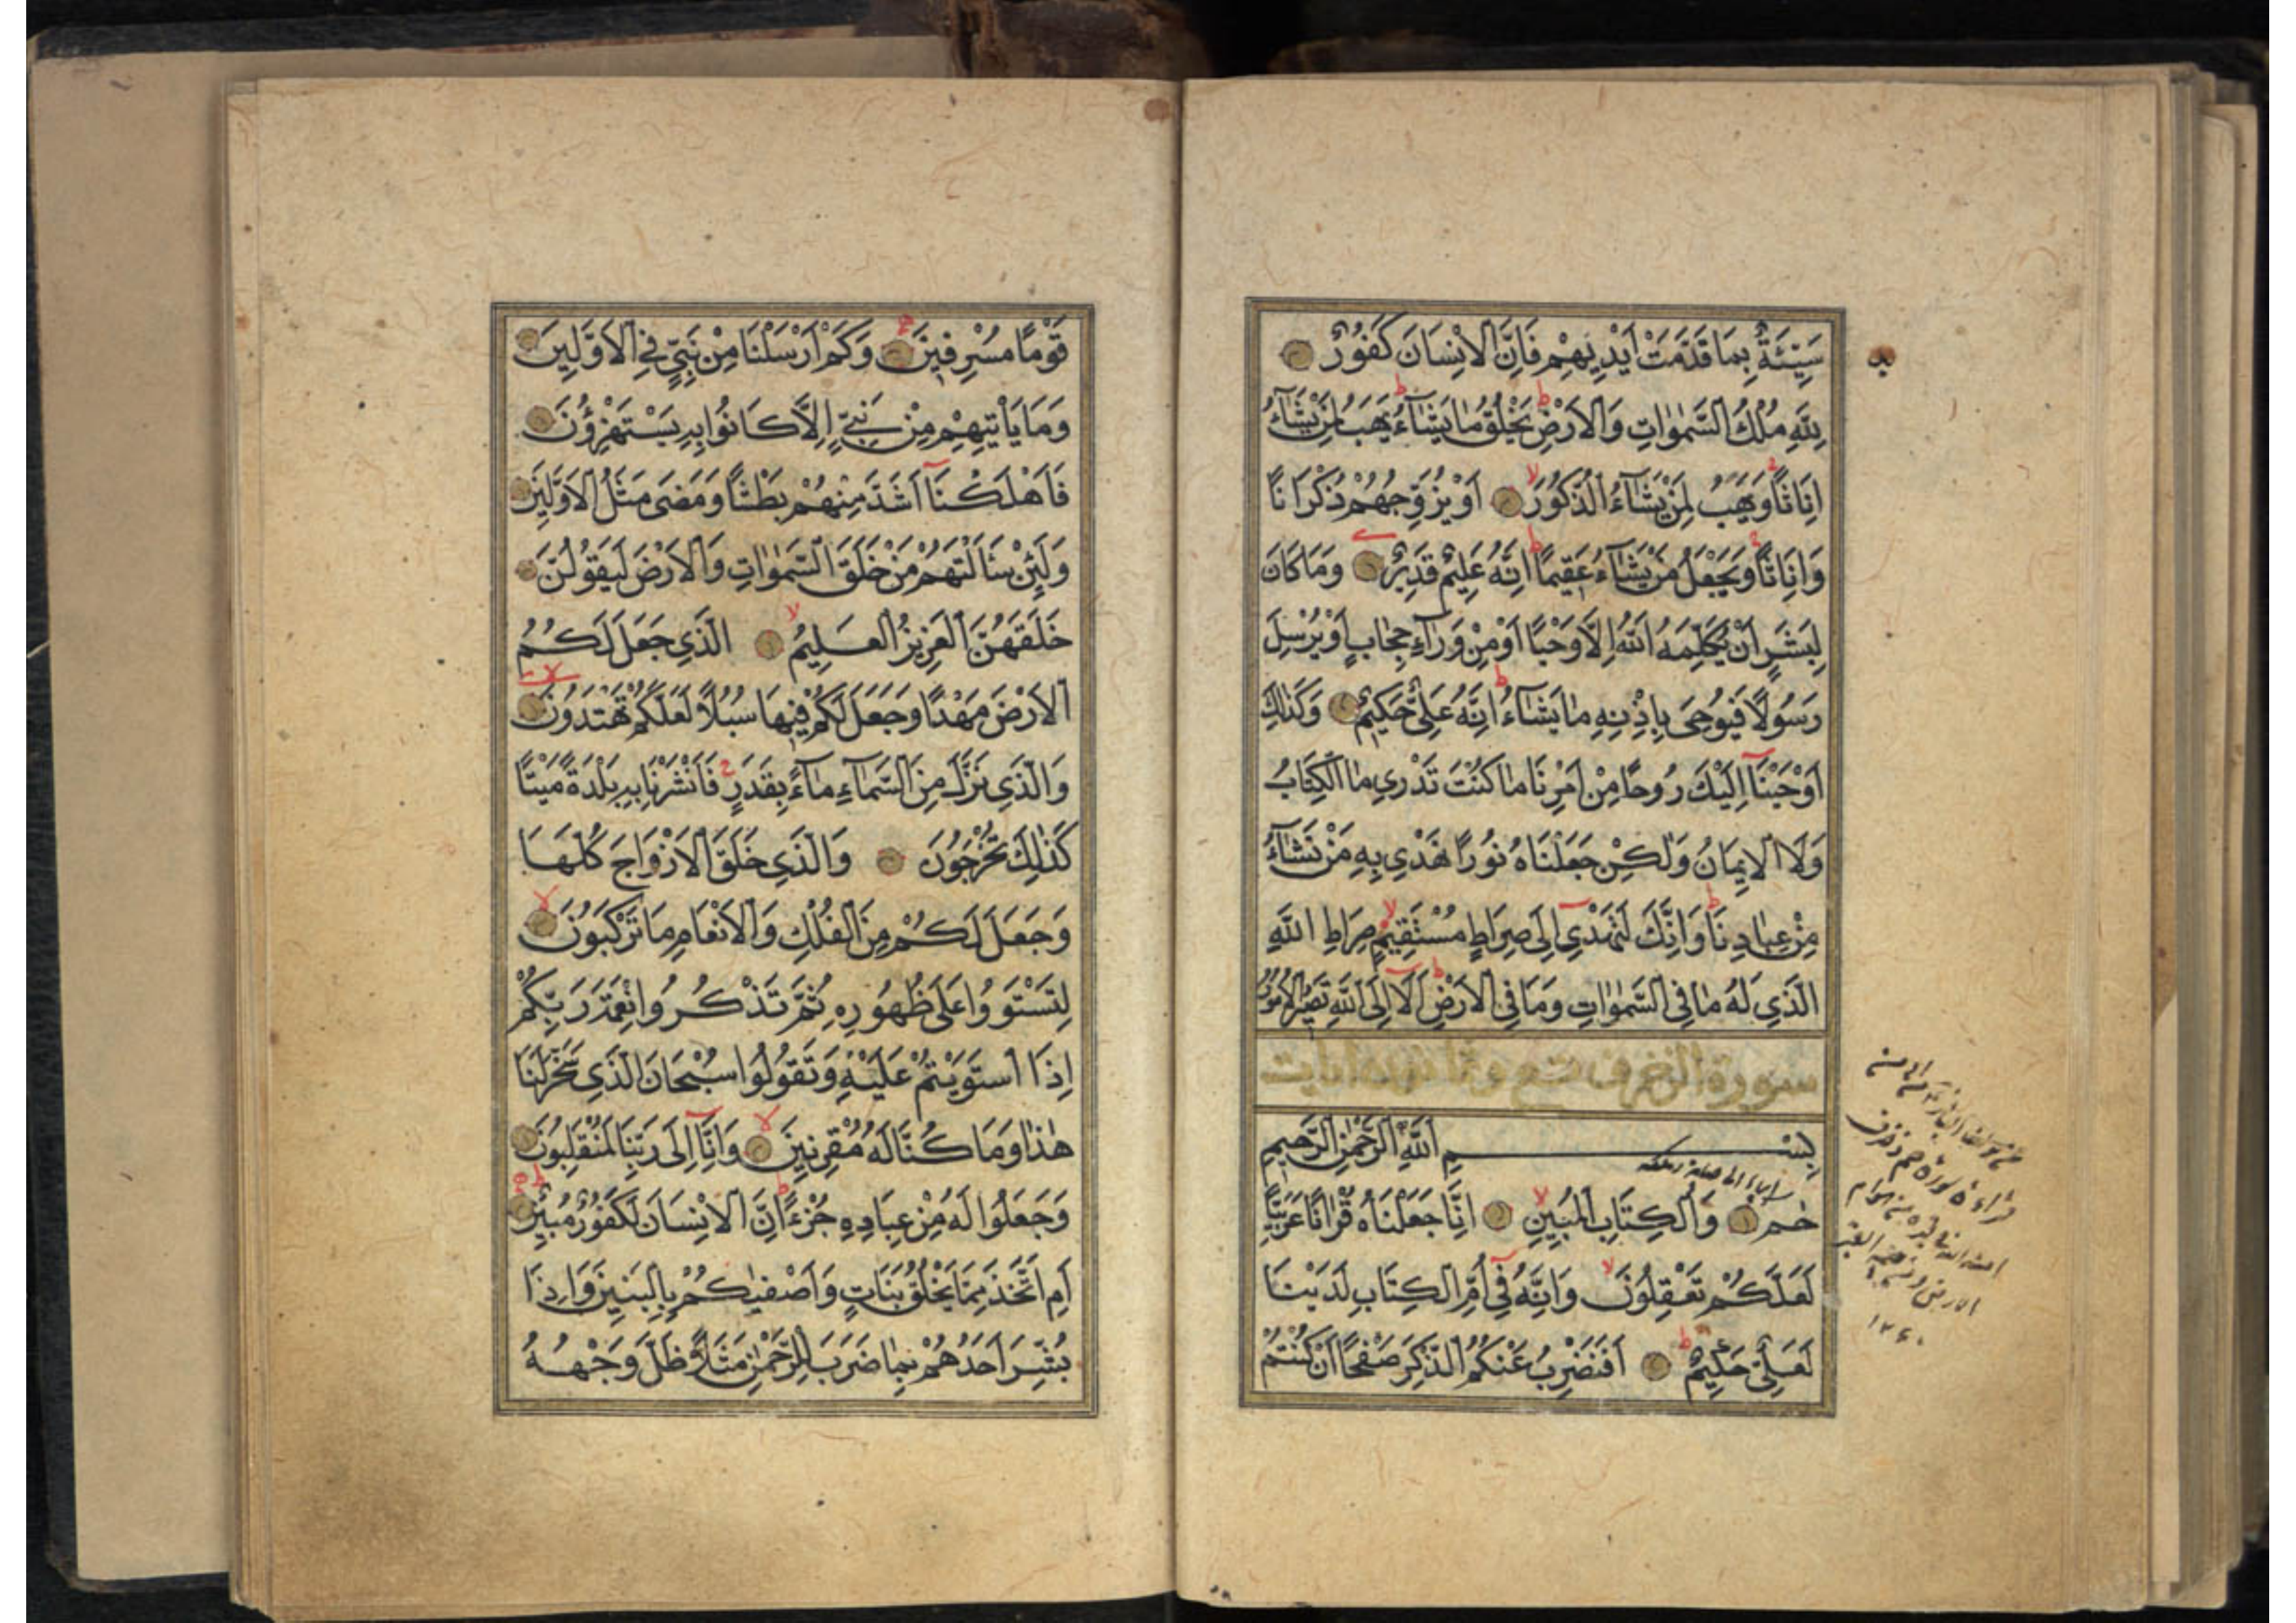 سَيِّئَةٌ بِمَا قَدَّمَتْ اَيْدِيهِمْ فَاِنَّ الْاِنْسَانَ كَفُورٌ
لِلّٰهِ مُلْكُ السَّمٰوَاتِ وَالْاَرْضِ يَخْلُقُ مَا يَشَاءُ يَهَبُ لِمَنْ يَشَاءُ
اِنَاثًا وَيَهَبُ لِمَنْ يَشَاءُ الذُّكُورَ اَوْ يُزَوِّجُهُمْ ذُكْرَانًا
وَاِنَاثًا وَيَجْعَلُ مَنْ يَشَاءُ عَقِيمًا اِنَّهُ عَلِيمٌ قَدِيرٌ وَمَا كَانَ
لِبَشَرٍ اَنْ يُكَلِّمَهُ اللّٰهُ اِلَّا وَحْيًا اَوْ مِنْ وَرَآءِ حِجَابٍ اَوْ يُرْسِلَ
رَسُولًا فَيُوحِيَ بِاِذْنِهِ مَا يَشَاءُ اِنَّهُ عَلِيٌّ حَكِيمٌ وَكَذٰلِكَ
اَوْحَيْنَا اِلَيْكَ رُوحًا مِنْ اَمْرِنَا مَا كُنْتَ تَدْرِي مَا الْكِتَابُ
وَلَا الْاِيمَانُ وَلٰكِنْ جَعَلْنَاهُ نُورًا نَهْدِي بِهِ مَنْ نَشَاءُ
مِنْ عِبَادِنَا وَاِنَّكَ لَتَهْدِي اِلَى صِرَاطٍ مُسْتَقِيمٍ صِرَاطِ اللّٰهِ
الَّذِي لَهُ مَا فِي السَّمٰوَاتِ وَمَا فِي الْاَرْضِ اَلَا اِلَى اللّٰهِ تَصِيرُ الْاُمُورُ
سورة الزخرف تسع وثمانون ايات
بِسْمِ اللّٰهِ الرَّحْمٰنِ الرَّحِيمِ
حٰم وَالْكِتَابِ الْمُبِينِ اِنَّا جَعَلْنَاهُ قُرْاٰنًا عَرَبِيًّا
لَعَلَّكُمْ تَعْقِلُونَ وَاِنَّهُ فِي اُمِّ الْكِتَابِ لَدَيْنَا
لَعَلِيٌّ حَكِيمٌ اَفَنَضْرِبُ عَنْكُمُ الذِّكْرَ صَفْحًا اَنْ كُنْتُمْ
١٢٤٠
قَوْمًا مُسْرِفِينَ وَكَمْ اَرْسَلْنَا مِنْ نَبِيٍّ فِي الْاَوَّلِينَ
وَمَا يَاْتِيهِمْ مِنْ نَبِيٍّ اِلَّا كَانُوا بِهِ يَسْتَهْزِؤُنَ
فَاَهْلَكْنَا اَشَدَّ مِنْهُمْ بَطْشًا وَمَضَى مَثَلُ الْاَوَّلِينَ
وَلَئِنْ سَاَلْتَهُمْ مَنْ خَلَقَ السَّمٰوَاتِ وَالْاَرْضَ لَيَقُولُنَّ
خَلَقَهُنَّ الْعَزِيزُ الْعَلِيمُ الَّذِي جَعَلَ لَكُمُ
الْاَرْضَ مَهْدًا وَجَعَلَ لَكُمْ فِيهَا سُبُلًا لَعَلَّكُمْ تَهْتَدُونَ
وَالَّذِي نَزَّلَ مِنَ السَّمَآءِ مَآءً بِقَدَرٍ فَاَنْشَرْنَا بِهِ بَلْدَةً مَيْتًا
كَذٰلِكَ تُخْرَجُونَ وَالَّذِي خَلَقَ الْاَزْوَاجَ كُلَّهَا
وَجَعَلَ لَكُمْ مِنَ الْفُلْكِ وَالْاَنْعَامِ مَا تَرْكَبُونَ
لِتَسْتَوُوا عَلَى ظُهُورِهِ ثُمَّ تَذْكُرُوا نِعْمَةَ رَبِّكُمْ
اِذَا اسْتَوَيْتُمْ عَلَيْهِ وَتَقُولُوا سُبْحَانَ الَّذِي سَخَّرَ لَنَا
هٰذَا وَمَا كُنَّا لَهُ مُقْرِنِينَ وَاِنَّا اِلَى رَبِّنَا لَمُنْقَلِبُونَ
وَجَعَلُوا لَهُ مِنْ عِبَادِهِ جُزْءًا اِنَّ الْاِنْسَانَ لَكَفُورٌ مُبِينٌ
اَمِ اتَّخَذَ مِمَّا يَخْلُقُ بَنَاتٍ وَاَصْفٰيكُمْ بِالْبَنِينَ وَاِذَا
بُشِّرَ اَحَدُهُمْ بِمَا ضَرَبَ لِلرَّحْمٰنِ مَثَلًا ظَلَّ وَجْهُهُ